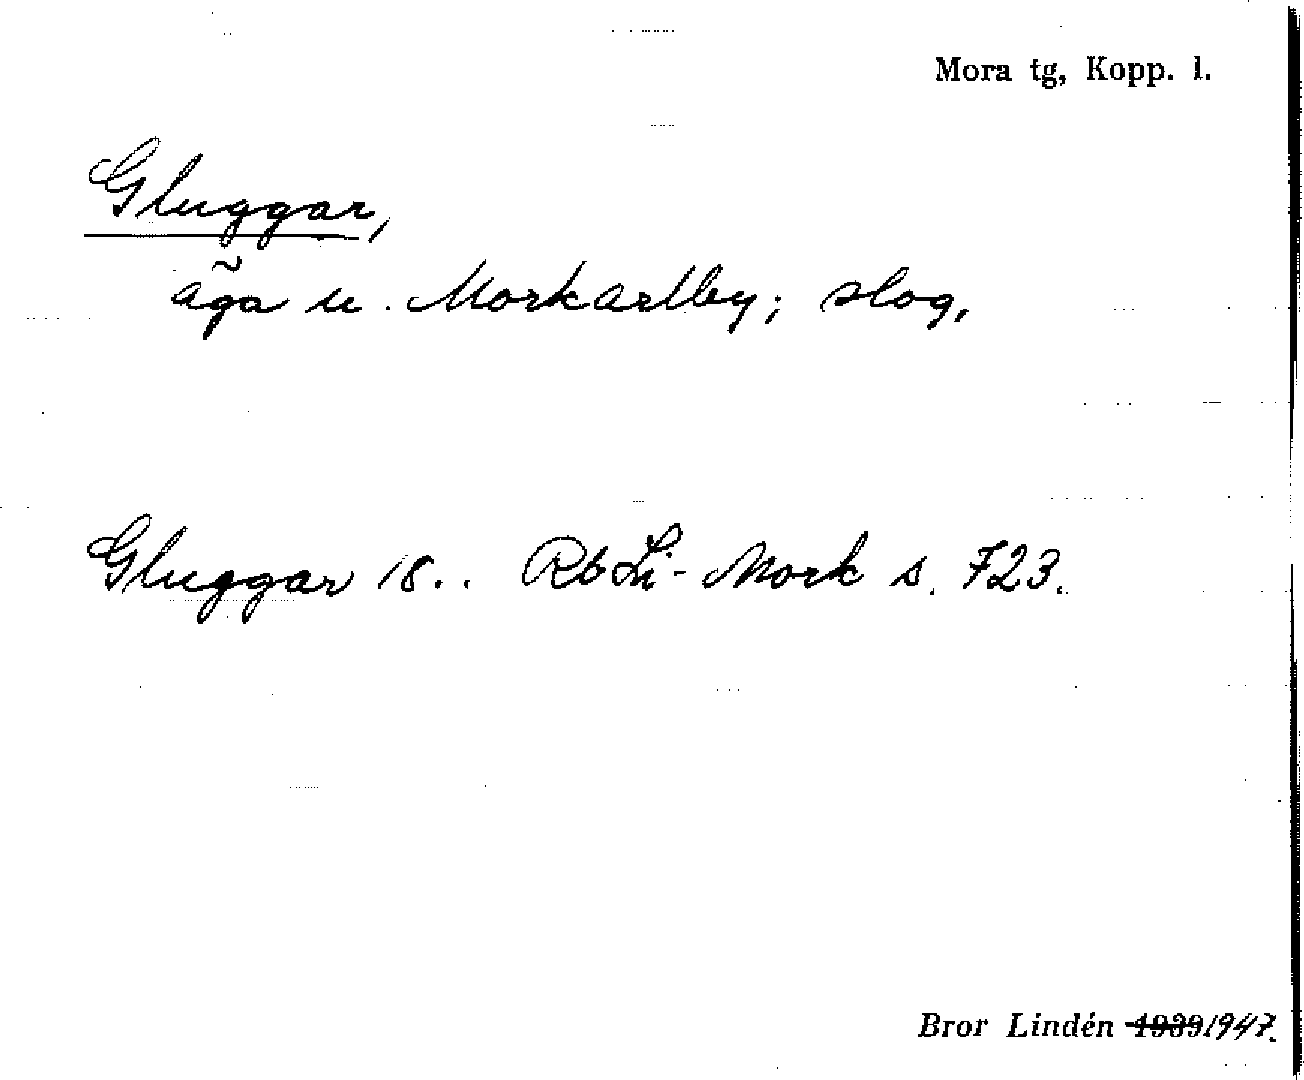 Mora tg, Kopp. l.
Gluggar,
äga u. Morkarlby; slog.
Gluggar 18.. RbLi-Mork s. 723.
Bror Lindén 1939 1947.